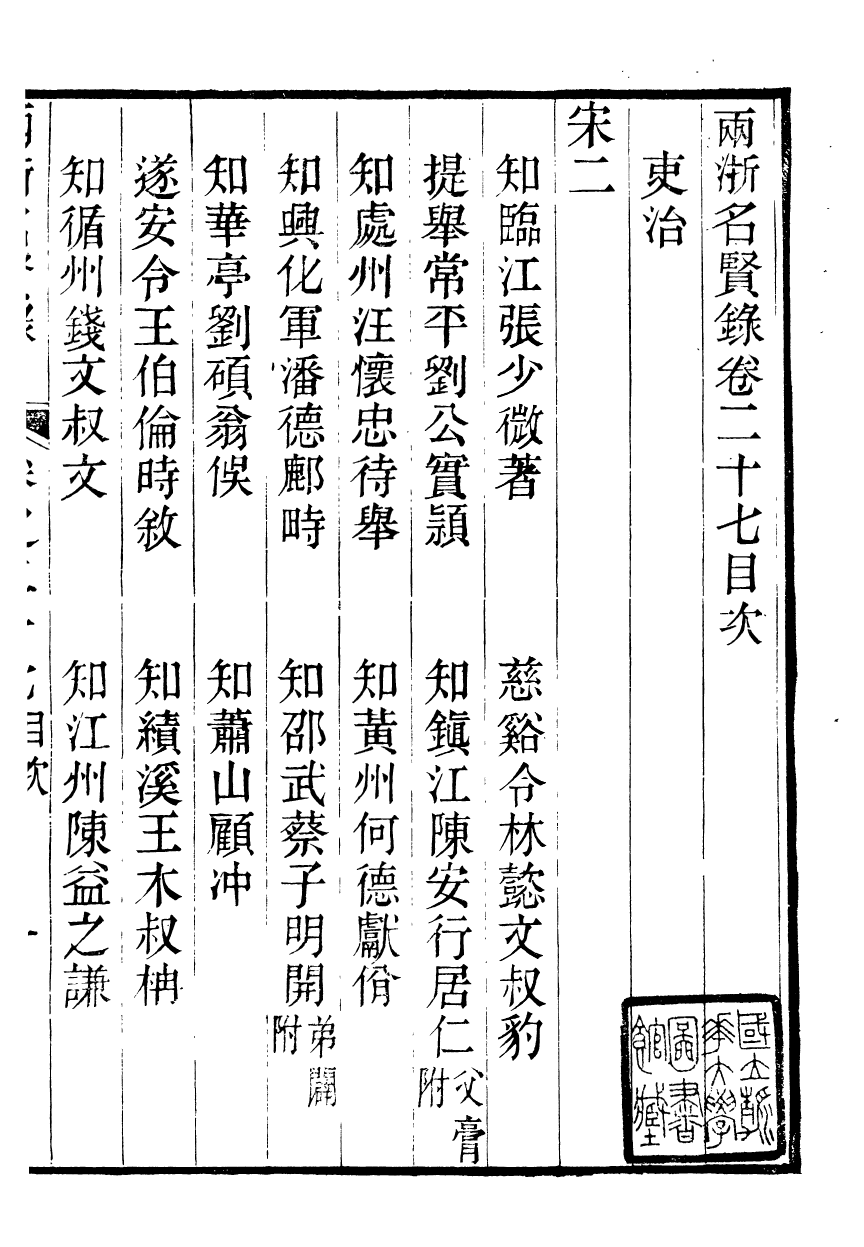 兩浙名賢錄卷二十七目次
吏治
宋二
知臨江張少微著 慈谿令林懿文叔豹
提舉常平劉公實穎 知鎮江陳安行居仁父膏附
知處州汪懷忠待舉 知黃州何德獻偁
知興化軍潘德鄜畤 知邵武蔡子明開弟闢附
知華亭劉碩翁俁 知蕭山顧冲
遂安令王伯倫時敘 知績溪王木叔柟
知循州錢文叔文 知江州陳益之謙
目次
一
國立
大學
圖書
館藏